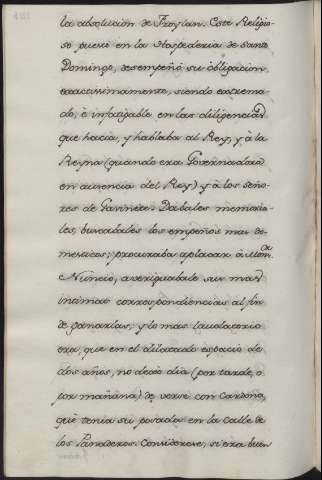 la absolucion de Froylan. Este Religio-
so puesto en la Hospederia de Santo
Domingo, desempeñó su obligacion
exactissimamente, siendo extrema-
do, è infatigable en las diligencias
que hacia, y hablaba al Rey, y à la
Reyna (quando era Governadora
en ausencia del Rey) y à los seño-
res de Gavinete. Dabales memoria-
les, buscabales los empeños mas do-
mesticos; procuraba aplacar à Mons.or
Nuncio, averiguabale sus mas
intimas correspondencias al fin
de ganarlas; y lo mas laudatorio
era, que en el dilatado espacio de
dos años, no dexó dia (por tarde, o
por mañana) de verse con Cardona,
que tenia su posada en la Calle de
los Panaderos. Considerese, si era buen